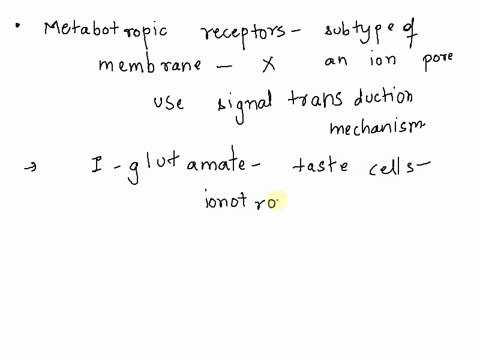 • Metabotropic receptors - subtype of
membrane - X an ion pore
use signal transduction
mechanism
→ I - glutamate - taste cells -
ionotro